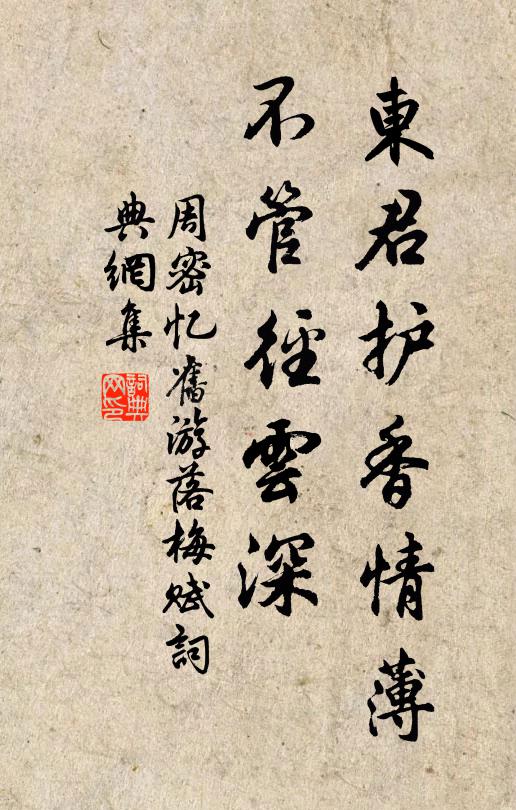 東君护香情薄
不管径雲深
周密忆舊游落梅赋詞
典網集
詞典網印